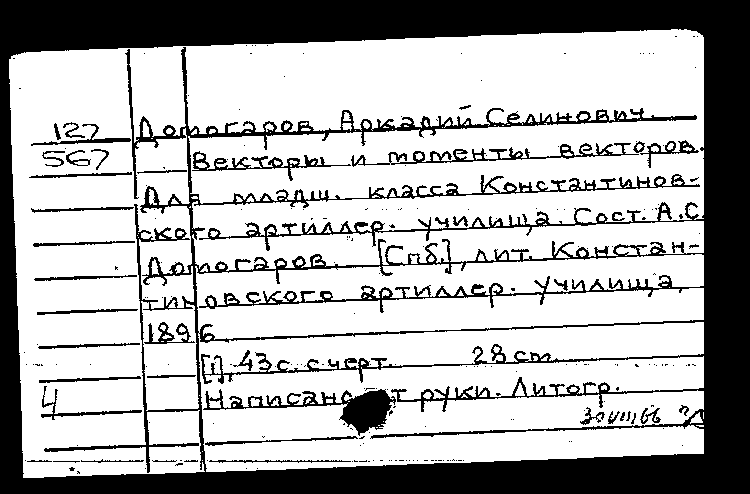 127 Домогаров, Аркадий Селинович.
567 Векторы и моменты векторов.
Для младш. класса Константинов-
ского артиллер. училища. Сост. А.С.
Домогаров. [Спб.], лит. Констан-
тиновского артиллер. училища,
1896.
[1], 43 с. с черт. 28 cm.
4 Написано от руки. Литогр.
30 VIII 66